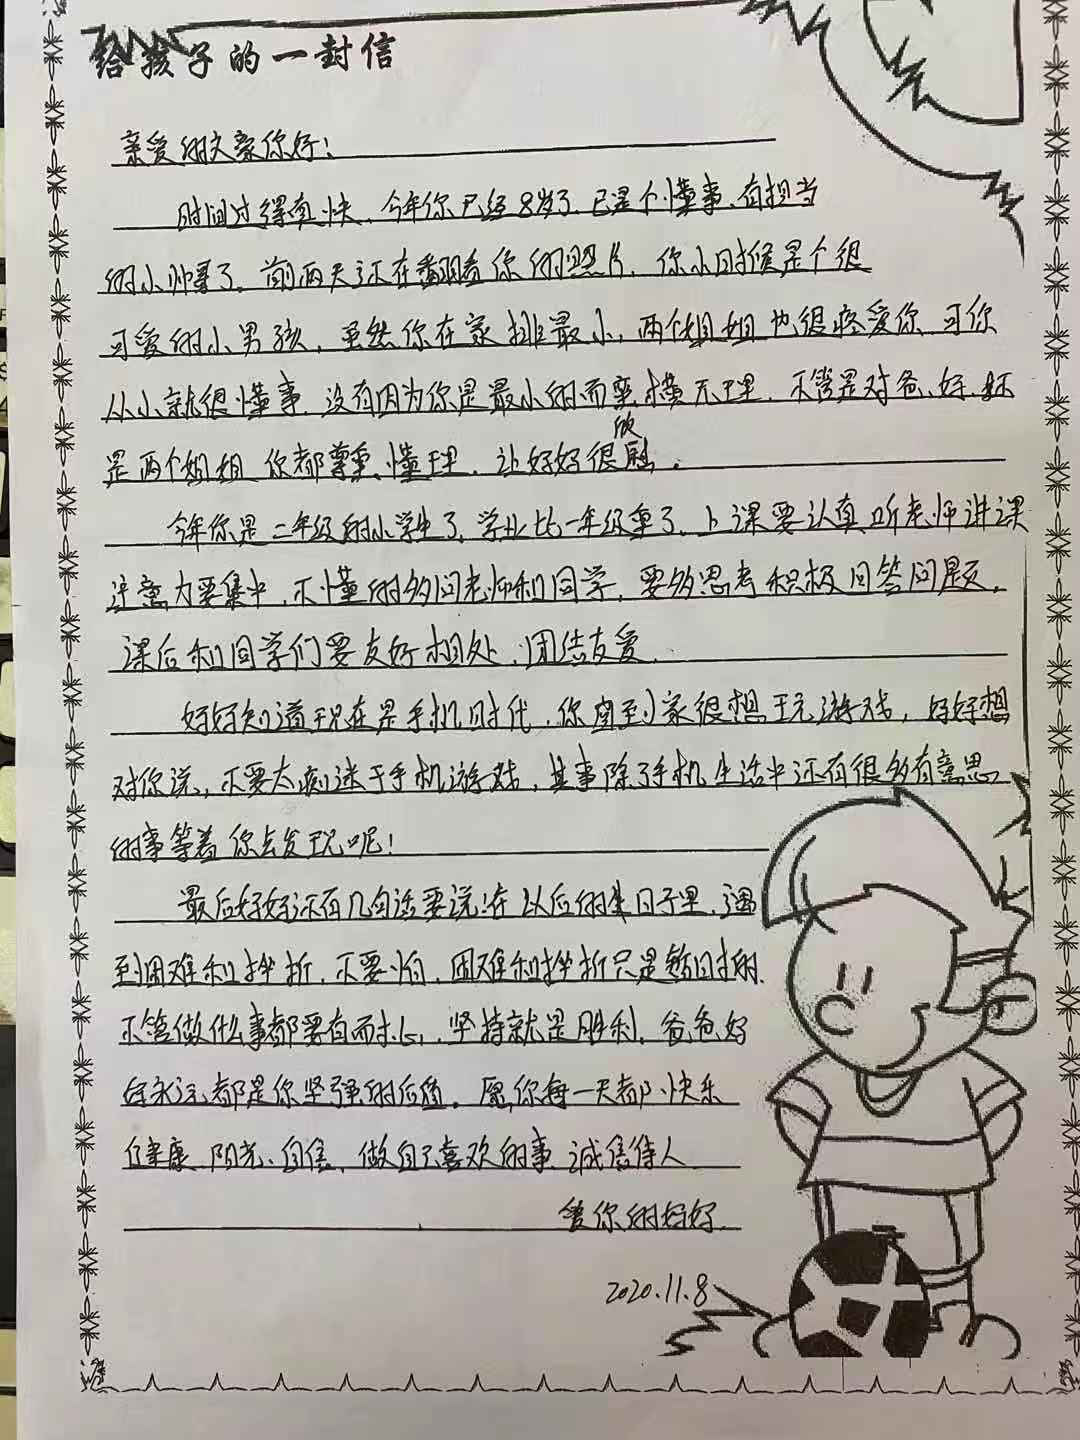 给孩子的一封信
亲爱的文豪你好！
时间过得真快，今年你已经8岁了，已是个懂事、有担当
的小帅哥了。前两天还在翻看你的照片，你小时候是个很
可爱的小男孩，虽然你在家排最小，两个姐姐也很疼爱你，可你
从小就很懂事，没有因为你是最小的而蛮横无理，不管是对爸、妈、还
是两个姐姐，你都尊重、懂理，让妈妈很欣慰。
今年你是二年级的小学生了，学业比一年级重了，上课要认真听老师讲课
注意力要集中，不懂的多问老师和同学，要多思考积极回答问题。
课后和同学们要友好相处、团结友爱。
妈妈知道现在是手机时代，你回到家很想玩游戏，妈妈想
对你说，不要太痴迷于手机游戏，其事除了手机生活中还有很多有意思
的事等着你去发现呢！
最后妈妈还有几句话要说：在以后的生日子里，遇
到困难和挫折，不要怕，困难和挫折只是暂时的，
不管做什么事都要有耐心，坚持就是胜利，爸爸妈
妈永远都是你坚强的后盾。愿你每一天都快乐
健康、阳光、自信，做自己喜欢的事，诚信待人
爱你的妈妈
2020.11.8